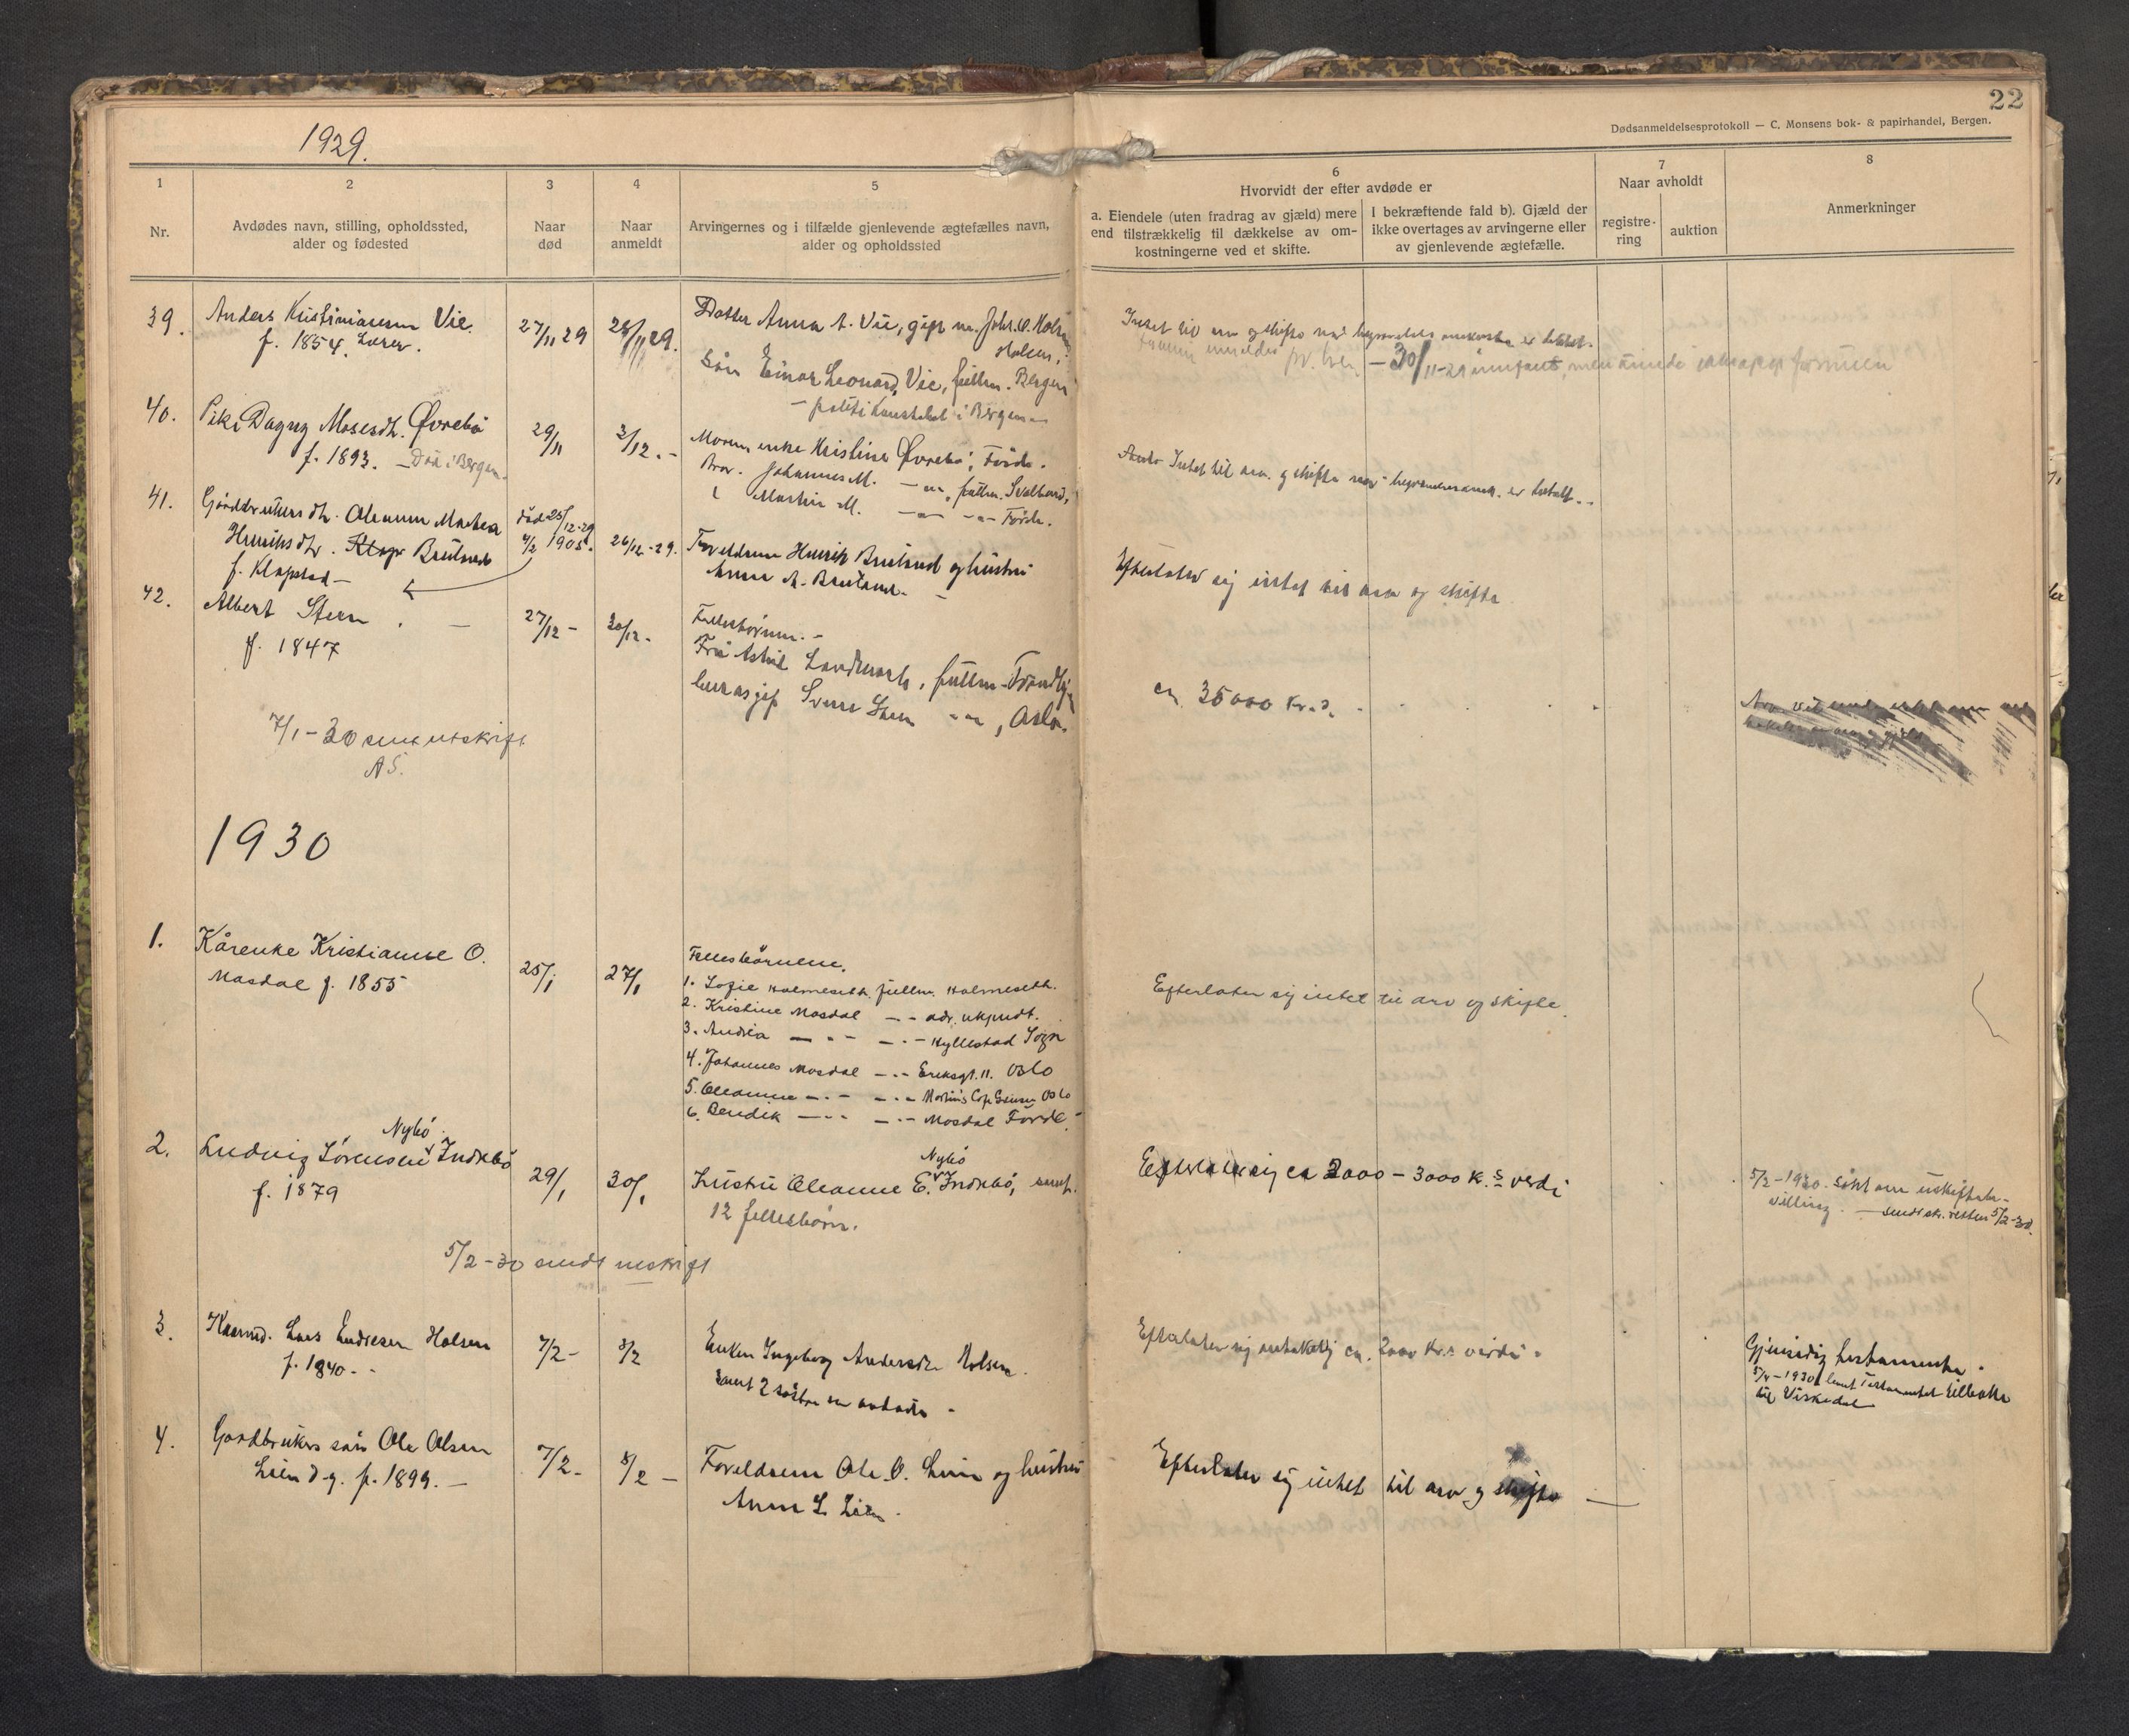 22
Dødsanmeldelsesprotokoll — C. Monsens bok- & papirhandel, Bergen.
1929.
1
2
3
4
5
6
7
8
Nr.
Avdødes navn, stilling, opholdssted,
alder og fødested
Naar
død
Naar
anmeldt
Arvingernes og i tilfælde gjenlevende ægtefælles navn,
alder og opholdssted
Hvorvidt der efter avdøde er
a. Eiendele (uten fradrag av gjæld) mere
end tilstrækkelig til dækkelse av om-
kostningerne ved et skifte.
I bekræftende fald b). Gjæld der
ikke overtages av arvingerne eller
av gjenlevende ægtefælle.
Naar avholdt
registre-
ring
auktion
Anmerkninger
39.
Anders Kristiansen Vie.
f. 1854. Lærer.
27/11 29
28/11 29.
Datter Anna A. Vie, gift m. Johs. O. Holsen
Holsen,
Søn Einar Leonard Vie, fullm. Bergen
- politikonstabel i Bergen
Intet til arv og skifte naar begravelses omkostn. er betalt.
30/11-29
40.
Pike Dagny Mosesdt. Øvrebø
f. 1893. - Død i Bergen.
29/11
3/12. -
Moren enke Kristine Øvrebø, Førde.
Bror. Johannes M. — " — fullm. Svalbard,
Martin M. — " — Førde.
Intet til arv og skifte naar begravelsesomk. er betalt.
41.
Gårdbrukersdtr. Oleanna Martea
Henriksdtr. Klop Bruland
f. Klopstad -
død 25/12-29
4/2 1905.
26/12-29.
Foreldrene Henrik Bruland og hustru
Anna A. Bruland.
Efterlater sig intet til arv og skifte
42.
Albert Stern
f. 1847
27/12 -
30/12 -
Fellesbørnene. -
Fru Astrid Landmark, fullm. Trondhj.
Sverre Stern — " —, Oslo.
ca 35000 Kr.
7/1-30 sent utskrift
AS.
1930
1.
Kårenke Kristianne O.
Mosdal f. 1855
25/1
27/1
Fellesbørnene.
1. Sofie Holmeseth. fullm. Holmeseth.
2. Kristine Mosdal — " — adr. ukjendt.
3. Andrea — " — — " — Hyllestad Sogn
4. Johannes Mosdal — " — Eriksgt. 11. Oslo
5. Oleanne — " — — " — Oslo
6. Bendik — " — — " — Mosdal Førde.
Efterlater sig intet til arv og skifte.
2.
Nybø
Ludvig Sørensen Indrebø
f. 1879
29/1
30/1
Nybø
Hustru Oleanne E. Indrebø, samt.
12 fellesbørn.
Efterlater sig ca 2000 - 3000 K.s verdi
5/2-1930. Søkt om uskiftebe-
villing. — sendt sk.retten 5/2-30.
5/2-30 sendt utskrift
3.
Kaarmd. Lars Endresen Holsen
f. 1840. -
7/2 -
8/2
Enken Ingeborg Andersdtr Holsen.
samt 2 søstre av avdøde -
Efterlater sig antakelig ca. 2000 Kr.s verdi.
Gjensidig testamente.
5/4-1930 sent testamentet tilbake
til Viskedal
4.
Gardbrukers søn Ole Olsen
Lien d.y. f. 1899. -
7/2 -
8/2 -
Foreldrene Ole O. Lien og hustru
Anna L. Lien.
Efterlater sig intet til arv og skifte —